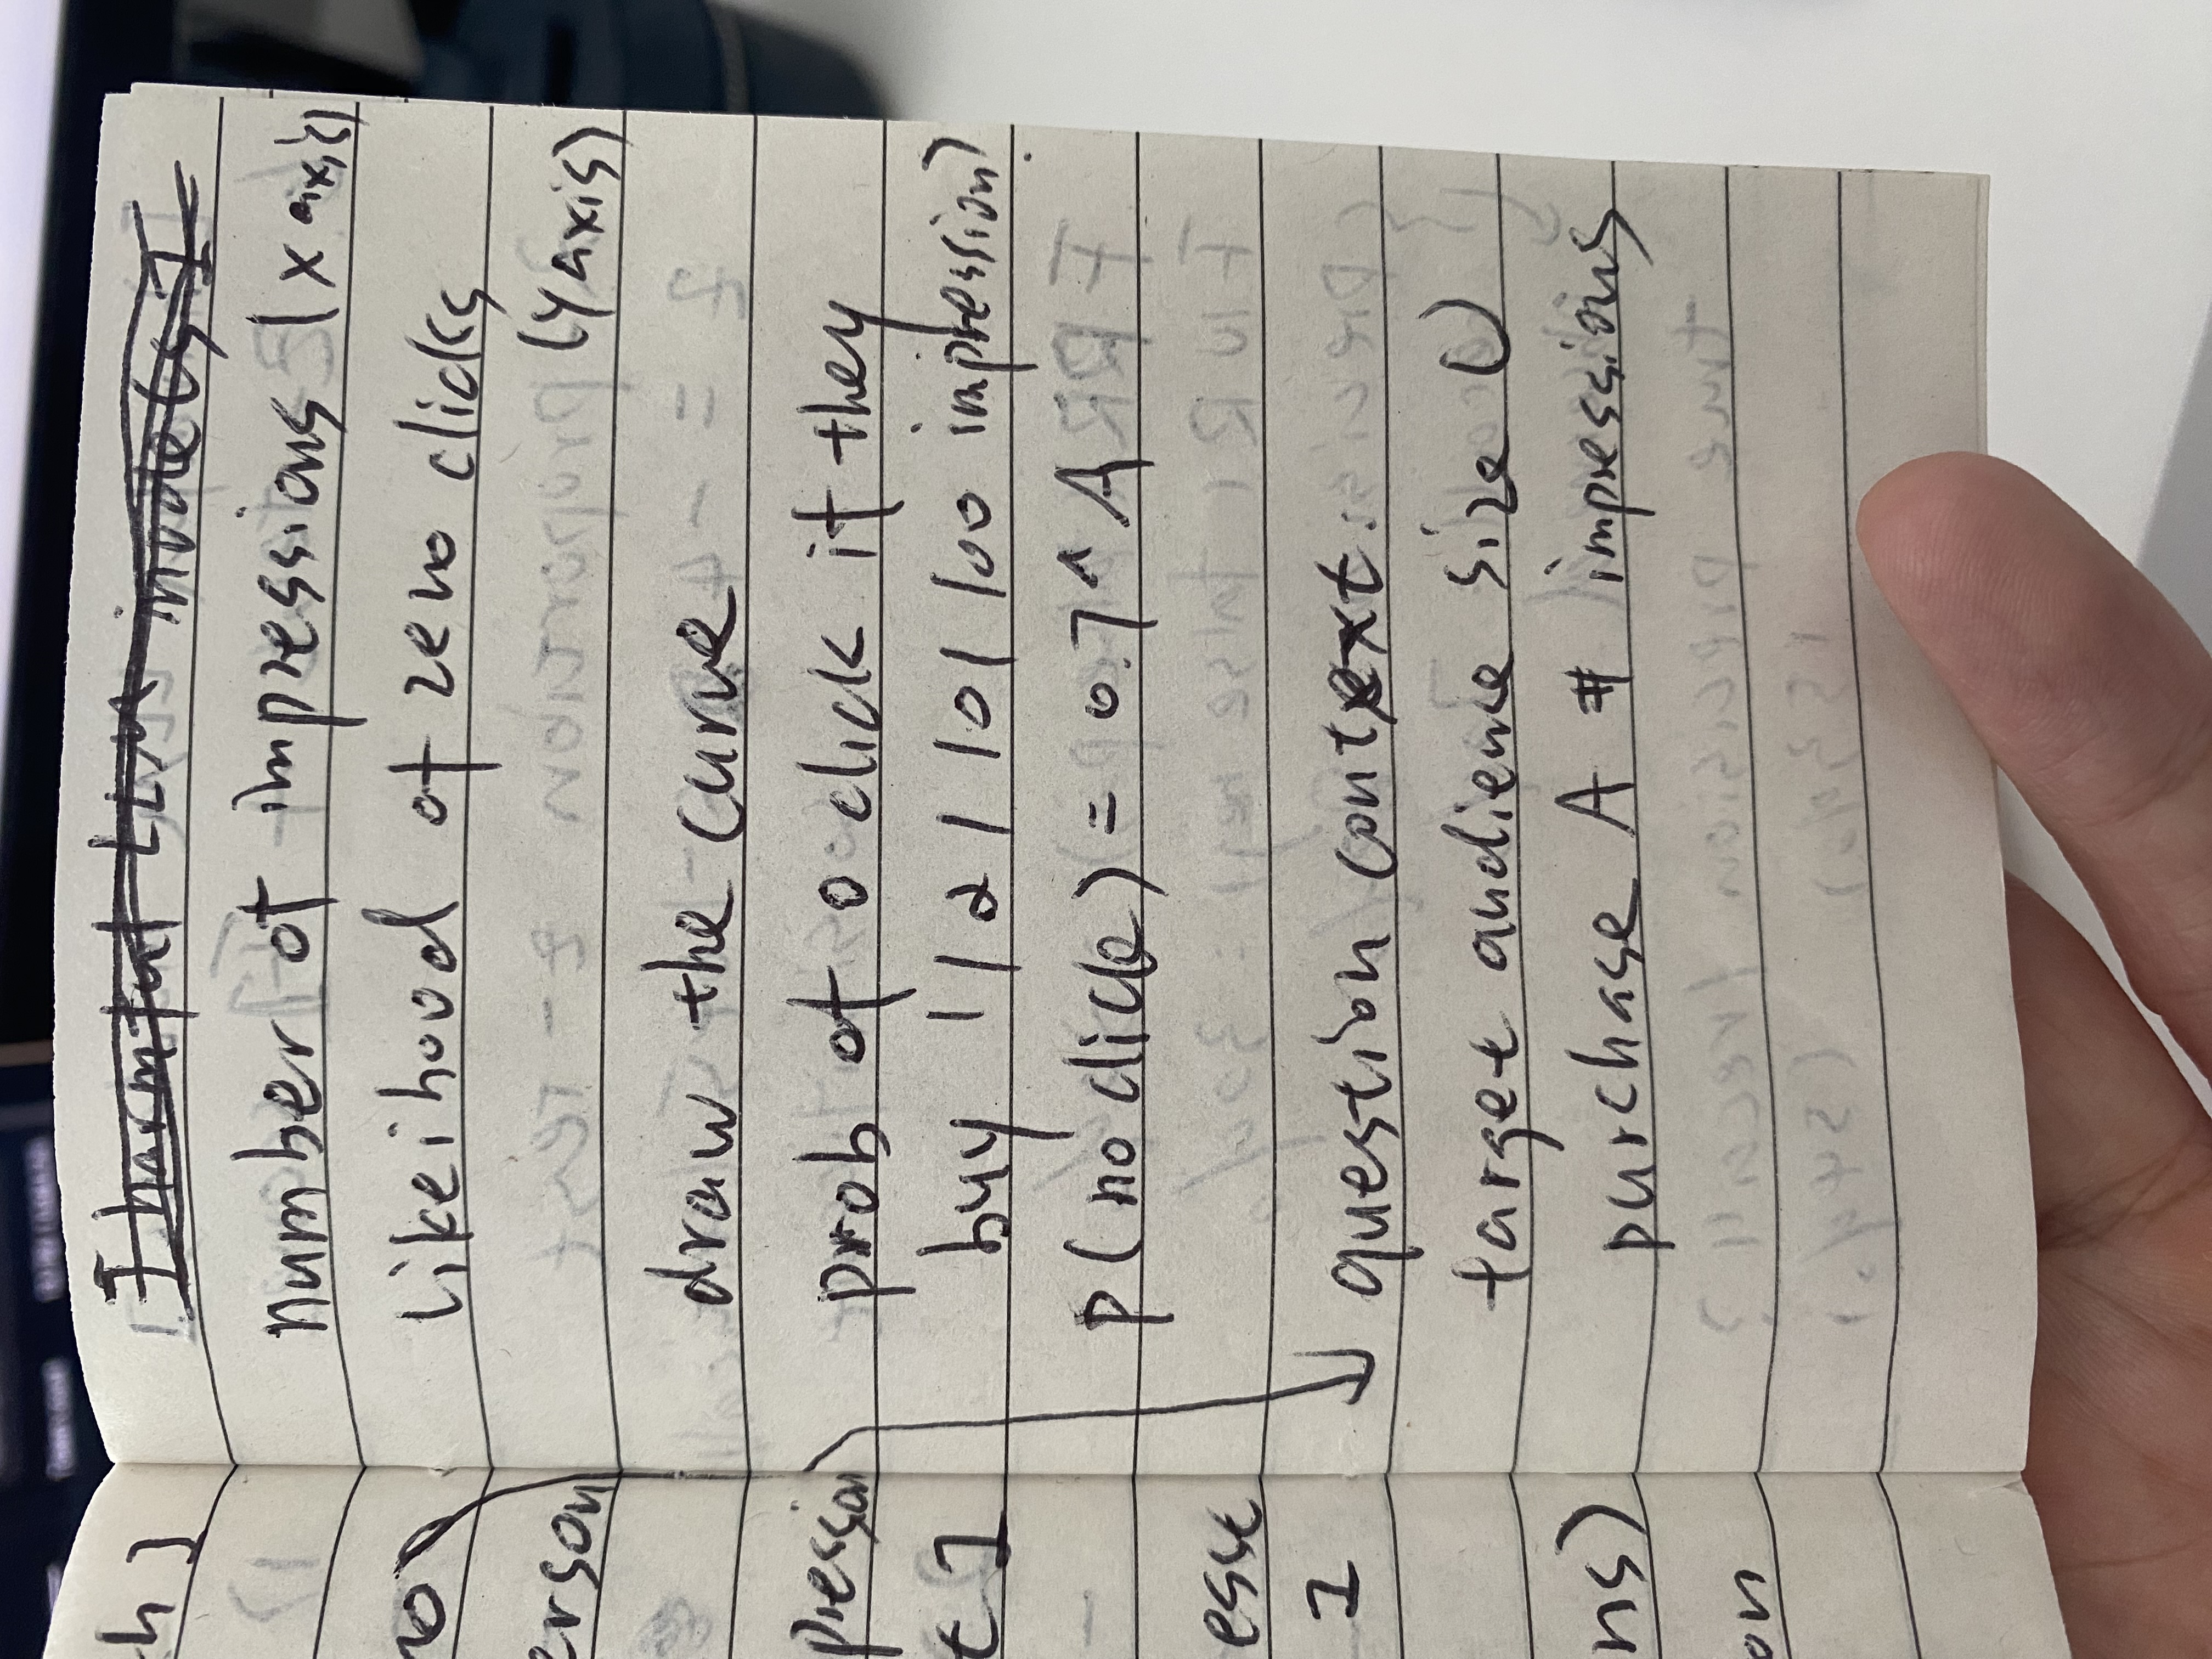 h]
ro
erson
pression
t]
esse
]
ns)
on
[harmful LLM models]
number of impressions (x axis)
likeihood of zero clicks
(y axis)
draw the curve
prob of 0 click if they
buy 1/2/10/100 impression?
p(no click) = 0.7^A
question context:
target audience size U
purchase A # impressions